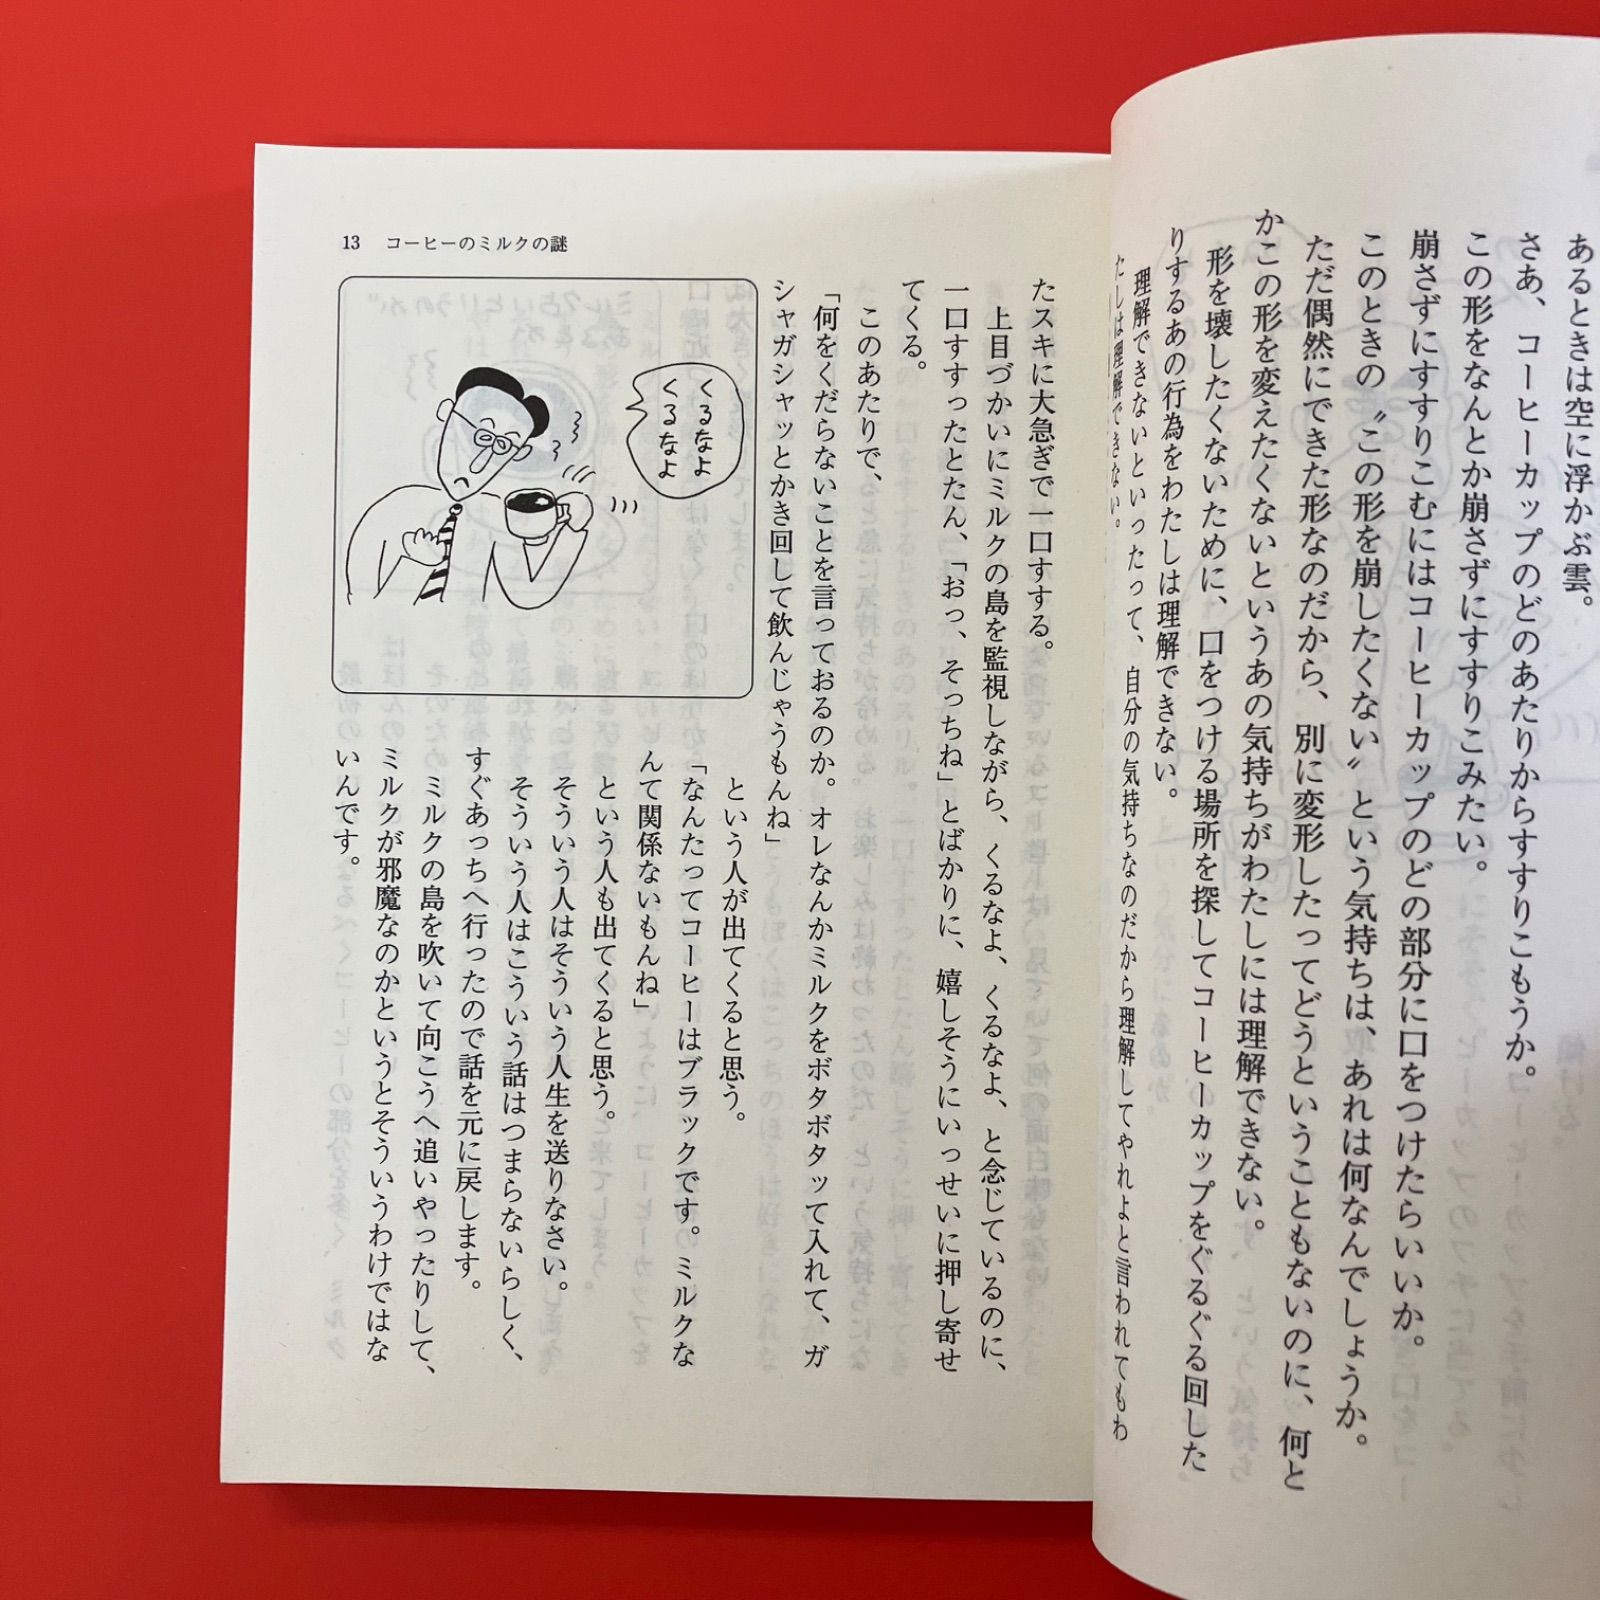 あるときは空に浮かぶ雲。
さあ、コーヒーカップのどのあたりからすすりこもうか。
この形をなんとか崩さずにすすりこみたい。
崩さずにすすりこむにはコーヒーカップのどの部分に口をつけたらいいか。
このときの〝この形を崩したくない〟という気持ちは、あれは何なんでしょうか。
ただ偶然にできた形なのだから、別に変形したってどうということもないのに、何と
かこの形を変えたくないというあの気持ちがわたしには理解できない。
形を壊したくないために、口をつける場所を探してコーヒーカップをぐるぐる回した
りするあの行為をわたしは理解できない。
理解できないといったって、自分の気持ちなのだから理解してやれよと言われてもわ
たしは理解できない。
13 コーヒーのミルクの謎
たスキに大急ぎで一口すする。
上目づかいにミルクの島を監視しながら、くるなよ、くるなよ、と念じているのに、
一口すすったとたん、「おっ、そっちね」とばかりに、嬉しそうにいっせいに押し寄せ
てくる。
このあたりで、
「何をくだらないことを言っておるのか。オレなんかミルクをボタボタッて入れて、ガ
シャガシャッとかき回して飲んじゃうもんね」
という人が出てくると思う。
「なんたってコーヒーはブラックです。ミルクな
んて関係ないもんね」
という人も出てくると思う。
そういう人はそういう人生を送りなさい。
そういう人はこういう話はつまらないらしく、
すぐあっちへ行ったので話を元に戻します。
ミルクの島を吹いて向こうへ追いやったりして、
ミルクが邪魔なのかというとそういうわけではな
いんです。
くるなよ
くるなよ